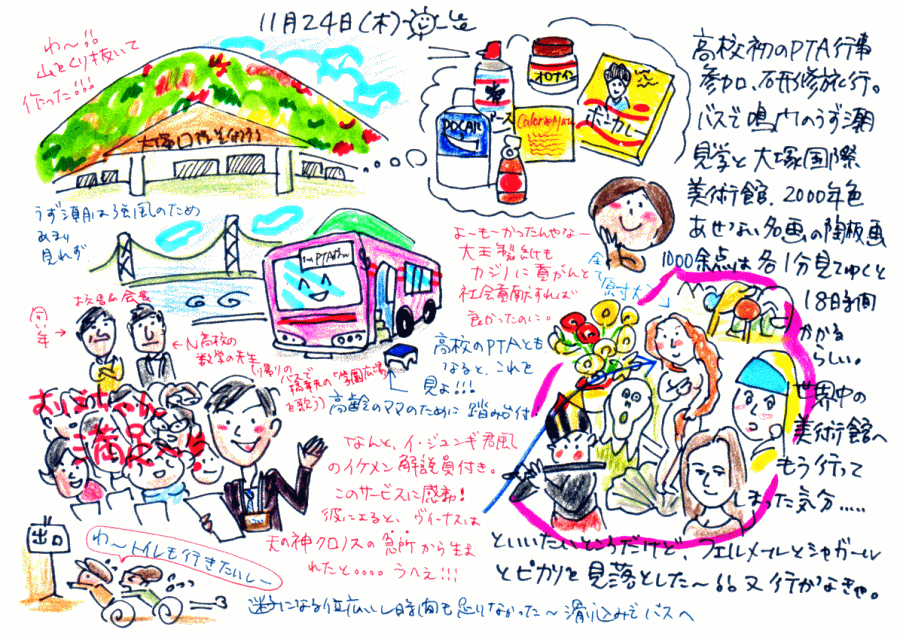 11月24日(木)
わ〜!!
山をくり抜いて
作った!!!
大塚
オロナイン
ボンカレー
POCARI
CalorieMate
高校初のPTA行事
参加、研修旅行。
バスで鳴門のうず潮
見学と大塚国際
美術館。2000年色
あせない名画の陶板画
1000余点は各1分見てゆくと
18時間
かかる
らしい。
世界中の
美術館へ
もう行って
しまった気分.....
といいたいところだけど フェルメールとシャガール
とピカソを見落とした〜 又行かなきゃ。
うず潮は強風のため
あまり
見れず
よーもーかったんやなー
大王製紙も
カジノに貢がんと
社会貢献すれば
良かったのに。
全て「原寸大」
校長&会長
同い年→
←N高校の
数学の先生
(帰りの
バスで
「学園広場」
を歌う)
高校のPTAとも
なると、これを
見よ!!!
高齢のママのために踏み台付
おばちゃん
満足
なんと、イ・ジュンギ君風
のイケメン解説員付き。
このサービスに感動!
彼によると、ヴィーナスは
天の神クロノスの急所から生ま
れたと。。。。うへえ!!!
出口
わ〜トイレも行きたいしー
迷子になる位広いし時間も足りなかった〜滑り込みでバスへ